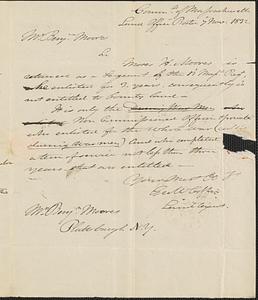 Comm. of Massachusetts
Land Office Boston 7 Nov. 1832
Mr. Benjn Moores
Sir
Moses H. Moores is
returned as a Sergeant of the Masst Regt.
who enlisted for 3. years, consequently is
not entitled to bounty land
It is only the
Non Commissioned Officer & private
who enlisted for the whole war
and who completed
a term of service not less than three
years that are entitled
Your most Ob. St
Geo W Coffin
Land Agent
Mr. Benjn Moores
Plattsburgh N.Y.